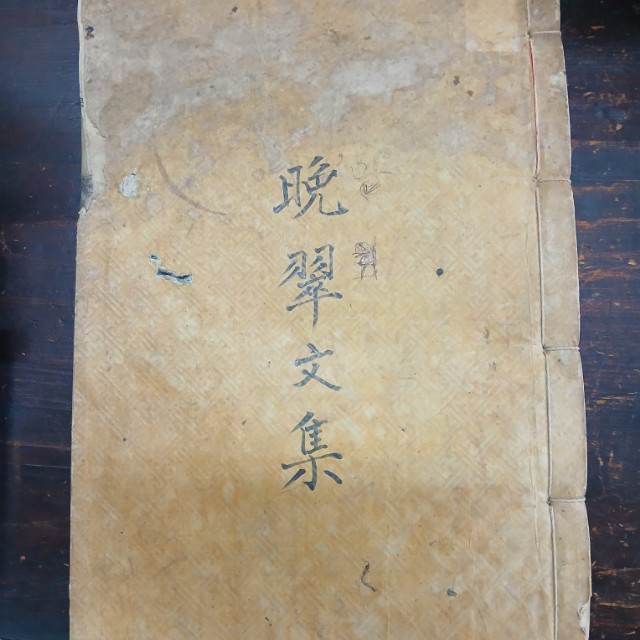 晩翠文集